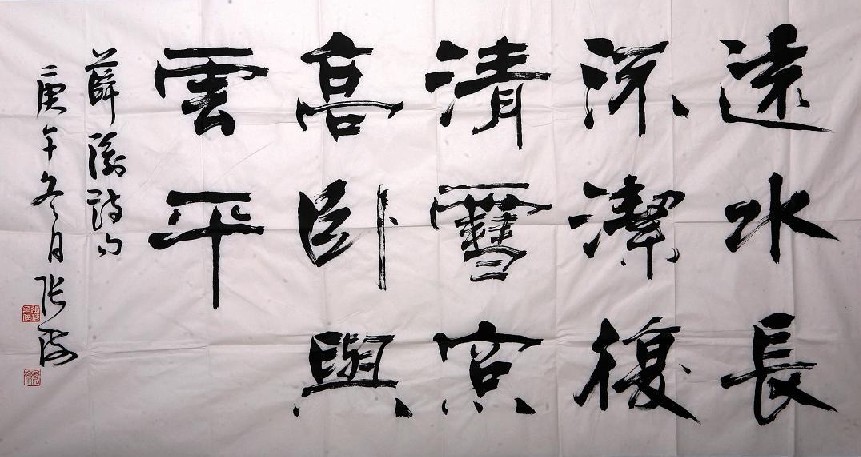 遠水長
流潔復
清雪窗
高臥與
雲平
薛濤詩句
庚午冬月張海